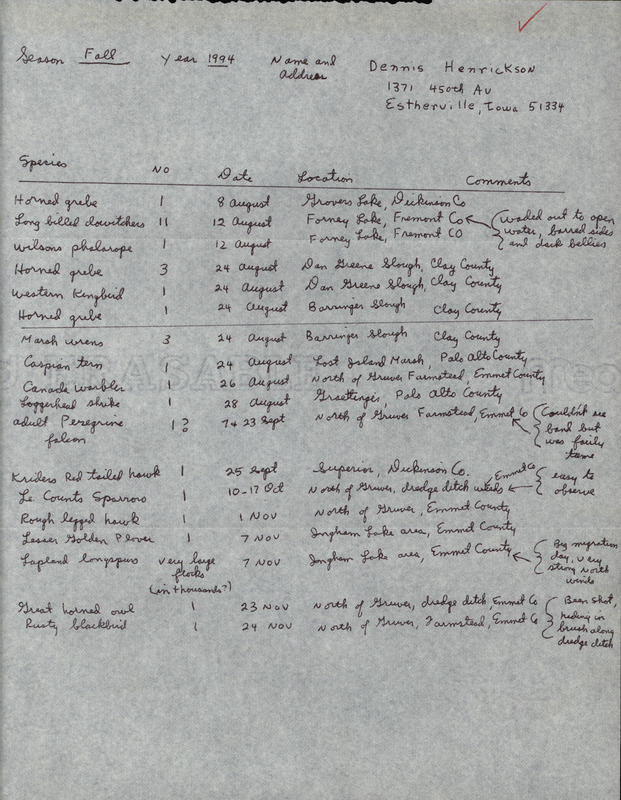 Season Fall Year 1994 Name and Address Dennis Henrickson
1371 450th Av
Estherville, Iowa 51334
Species No Date Location Comments
Horned grebe 1 8 August Grovers Lake, Dickinson Co
Long billed dowitchers 11 12 August Forney Lake, Fremont Co waded out to open water, barred sides and dark bellies
Wilsons phalarope 1 12 August Forney Lake, Fremont CO
Horned grebe 3 24 August Dan Greene Slough, Clay County
Western Kingbird 1 24 August Dan Greene Slough, Clay County
Horned grebe 1 24 August Barringer Slough Clay County
Marsh wrens 3 24 August Barringer Slough Clay County
Caspian tern 1 24 August Lost Island Marsh, Palo Alto County
Canada warbler 1 26 August North of Gruver Farmstead, Emmet County
Loggerhead shrike 1 28 August Graettinger, Palo Alto County
adult Peregrine falcon 1? 7+23 Sept North of Gruver Farmstead, Emmet Co Couldn't see band but was fairly tame
Kriders Red tailed hawk 1 25 Sept Superior, Dickinson Co.
Le Conts Sparrow 1 10-17 Oct North of Gruver, dredge ditch weeds Emmet Co easy to observe
Rough legged hawk 1 1 Nov North of Gruver, Emmet County
Lesser Golden Plover 1 7 Nov Ingham Lake area, Emmet County
Lapland longspurs very large flocks (in thousands?) 7 Nov Ingham Lake area, Emmet County Big migration day, very strong north winds
Great horned owl 1 23 Nov North of Gruver, dredge ditch, Emmet Co Been shot, hiding in brush along dredge ditch
Rusty blackbird 1 24 Nov North of Gruver, Farmstead, Emmet Co